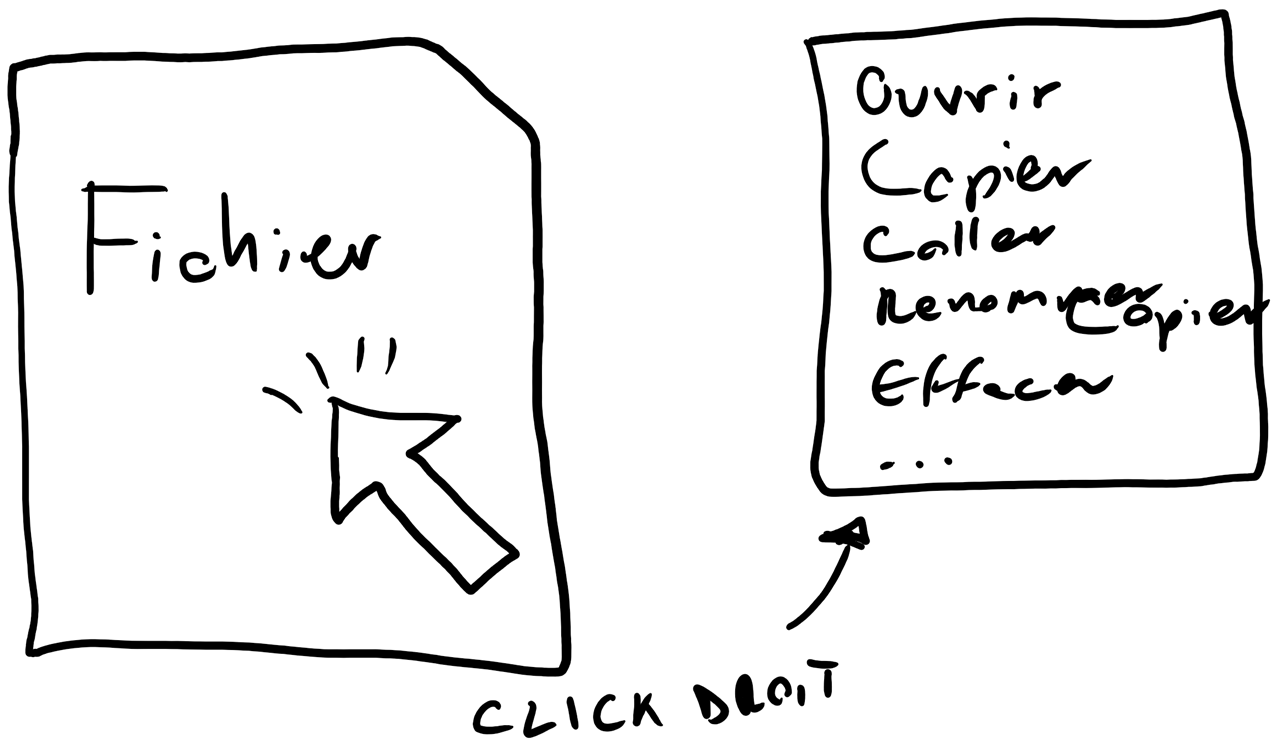 Fichier
Ouvrir
Copier
Coller
Renommer
Copier
Effacer
...
CLICK DROIT